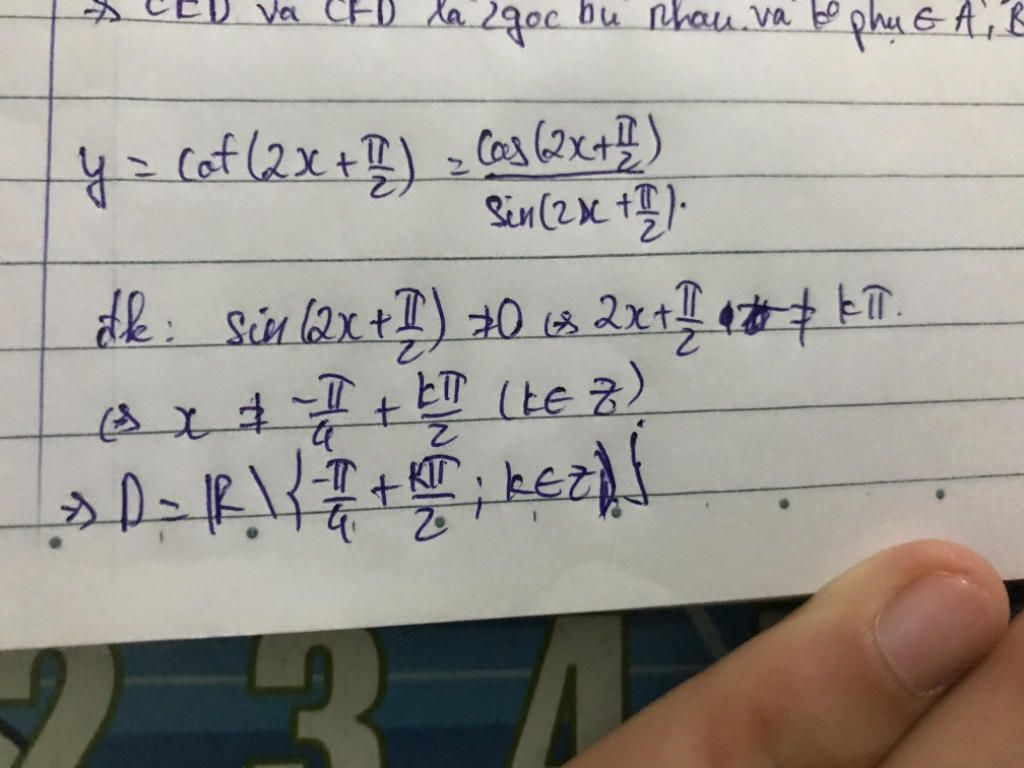 => CED và CFD là 2góc bù nhau và phụ ∈ A, B
y = cot(2x + π/2) = cos(2x+π/2) / sin(2x+π/2).
đk: sin(2x+π/2) ≠ 0 <=> 2x+π/2 ≠ kπ.
<=> x ≠ -π/4 + kπ/2 (k ∈ Z)
=> D = ℝ \ {-π/4 + kπ/2 ; k∈Z}
2 3 4